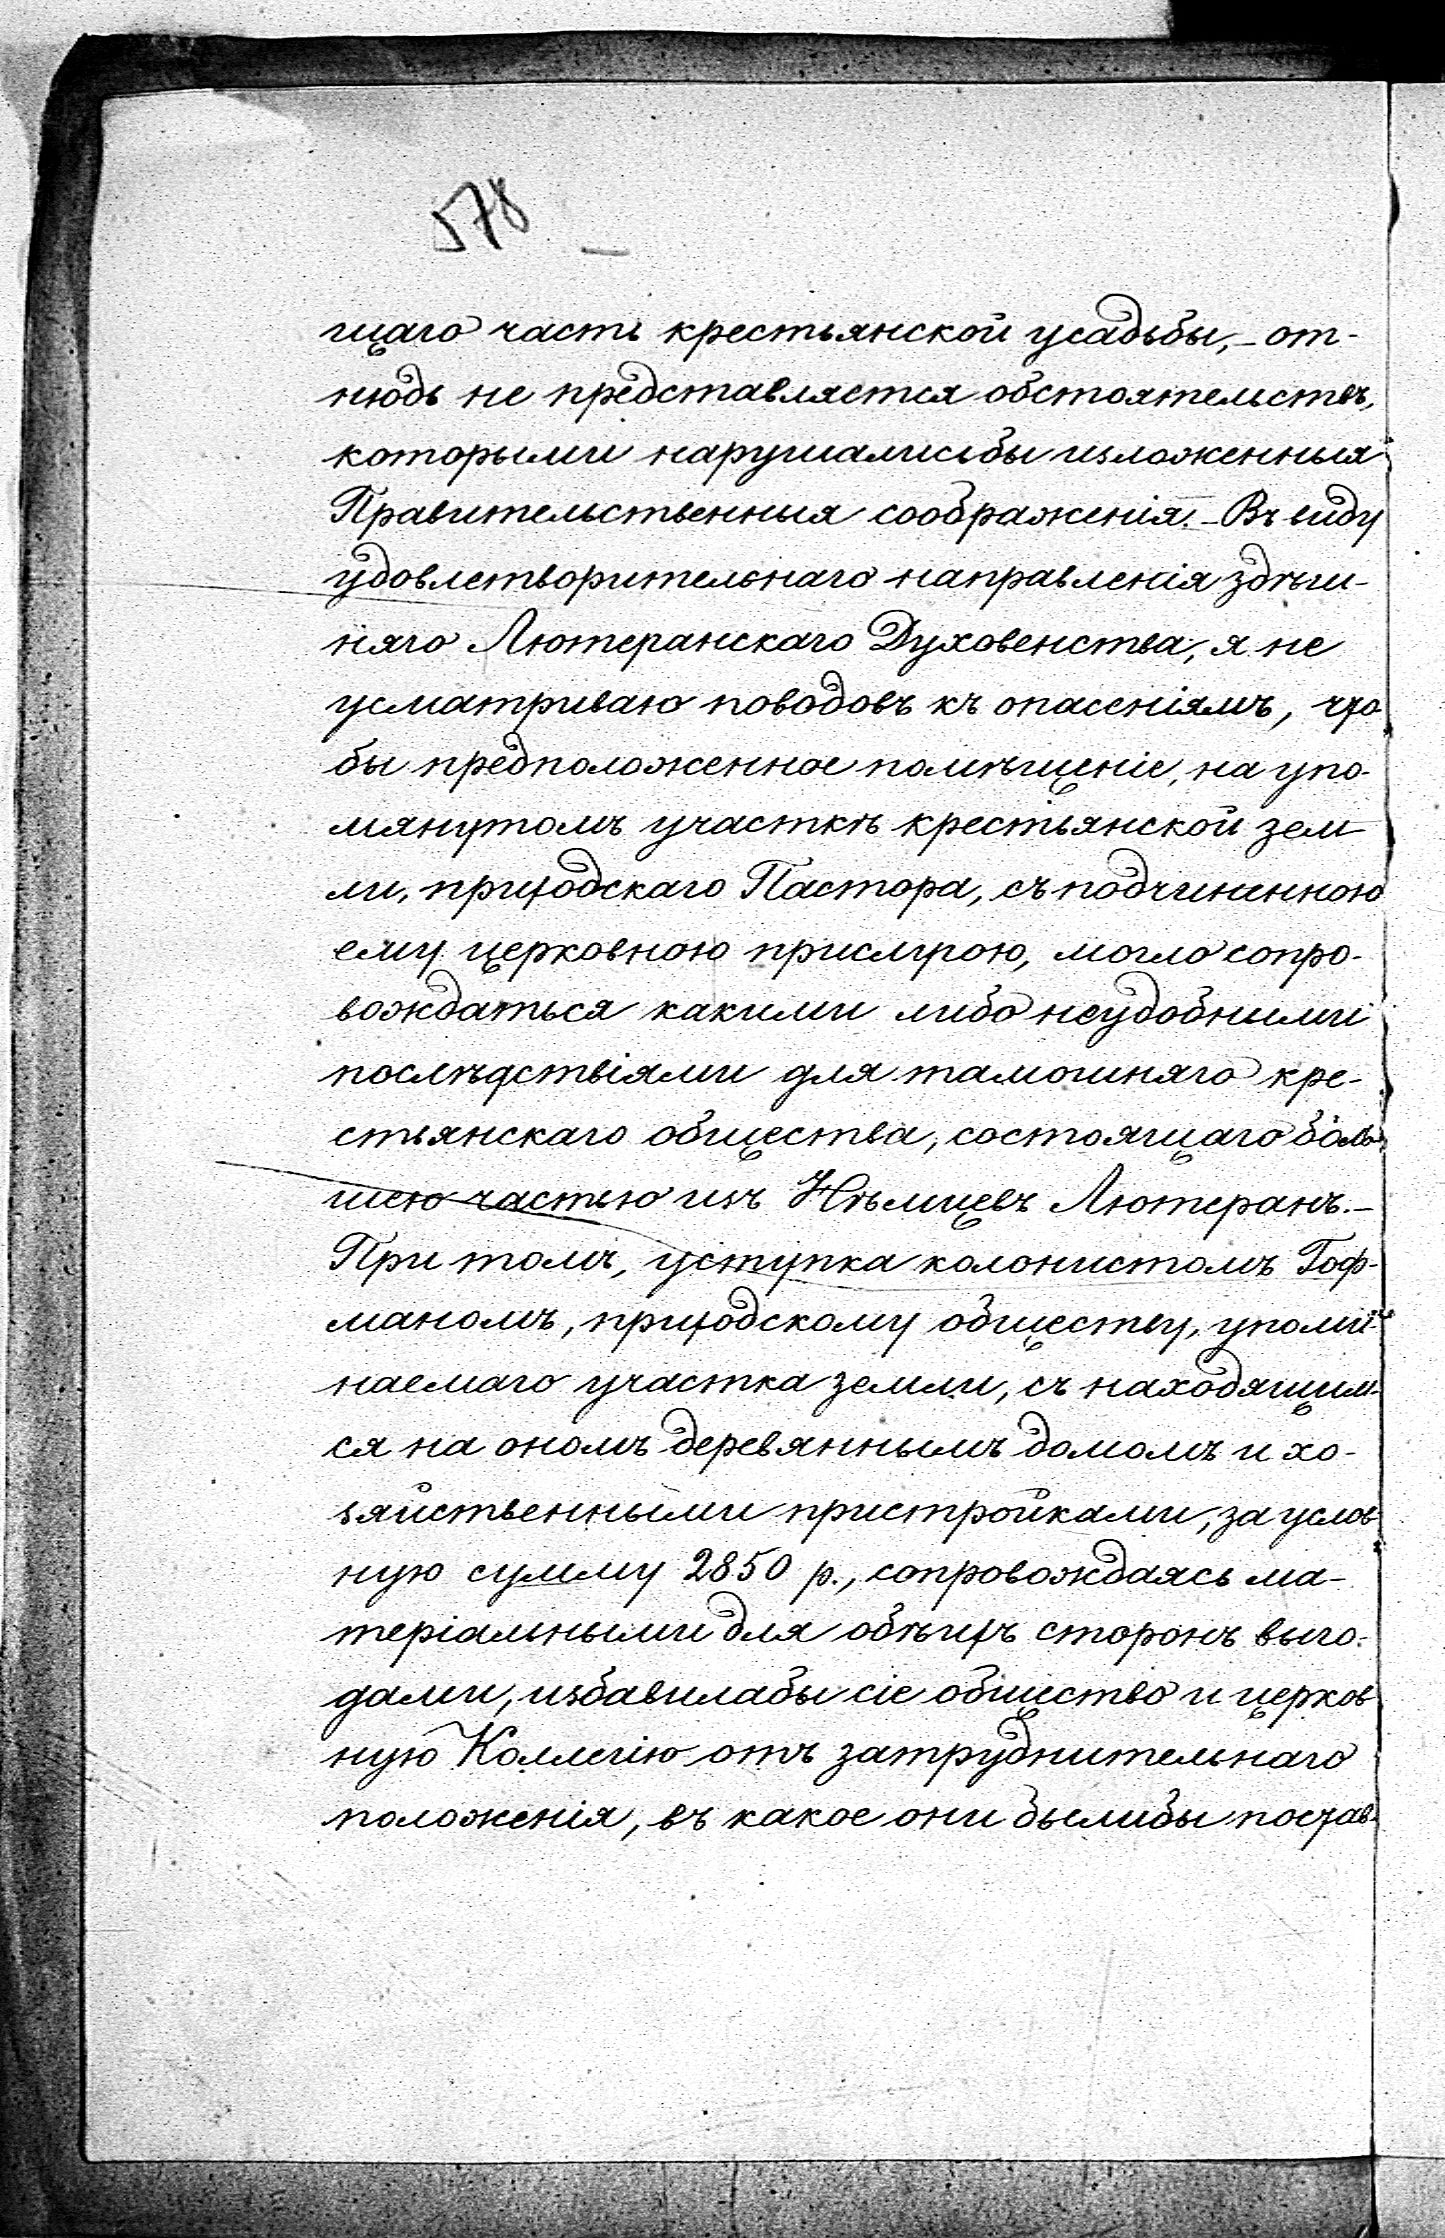 578 —
щаго часть крестьянской усадьбы, – от-
нюдь не представляется обстоятельствъ,
которыми нарушались бы изложенныя
Правительственныя соображенія. – Въ виду
удовлетворительнаго направленія здѣш-
няго Лютеранскаго Духовенства, я не
усматриваю поводовъ къ опасеніямъ, что
бы предположенное помѣщеніе, на упо-
мянутомъ участкѣ крестьянской зем-
ли, приходскаго Пастора, съ подчиненною
ему церковною прислугою, могло сопро-
вождаться какими либо неудобными
послѣдствіями для тамошняго кре-
стьянскаго общества, состоящаго боль-
шею частью изъ Нѣмцевъ Лютеранъ. –
При томъ, уступка колонистомъ Гоф-
маномъ, приходскому обществу, упоми-
наемаго участка земли, съ находящим-
ся на ономъ деревяннымъ домомъ и хо-
зяйственными пристройками, за услов-
ную сумму 2850 р., сопровождаясь ма-
теріальными для обѣихъ сторонъ выго-
дами, избавилабы сіе общество и церков-
ную Коллегію отъ затруднительнаго
положенія, въ какое они былибы постав-